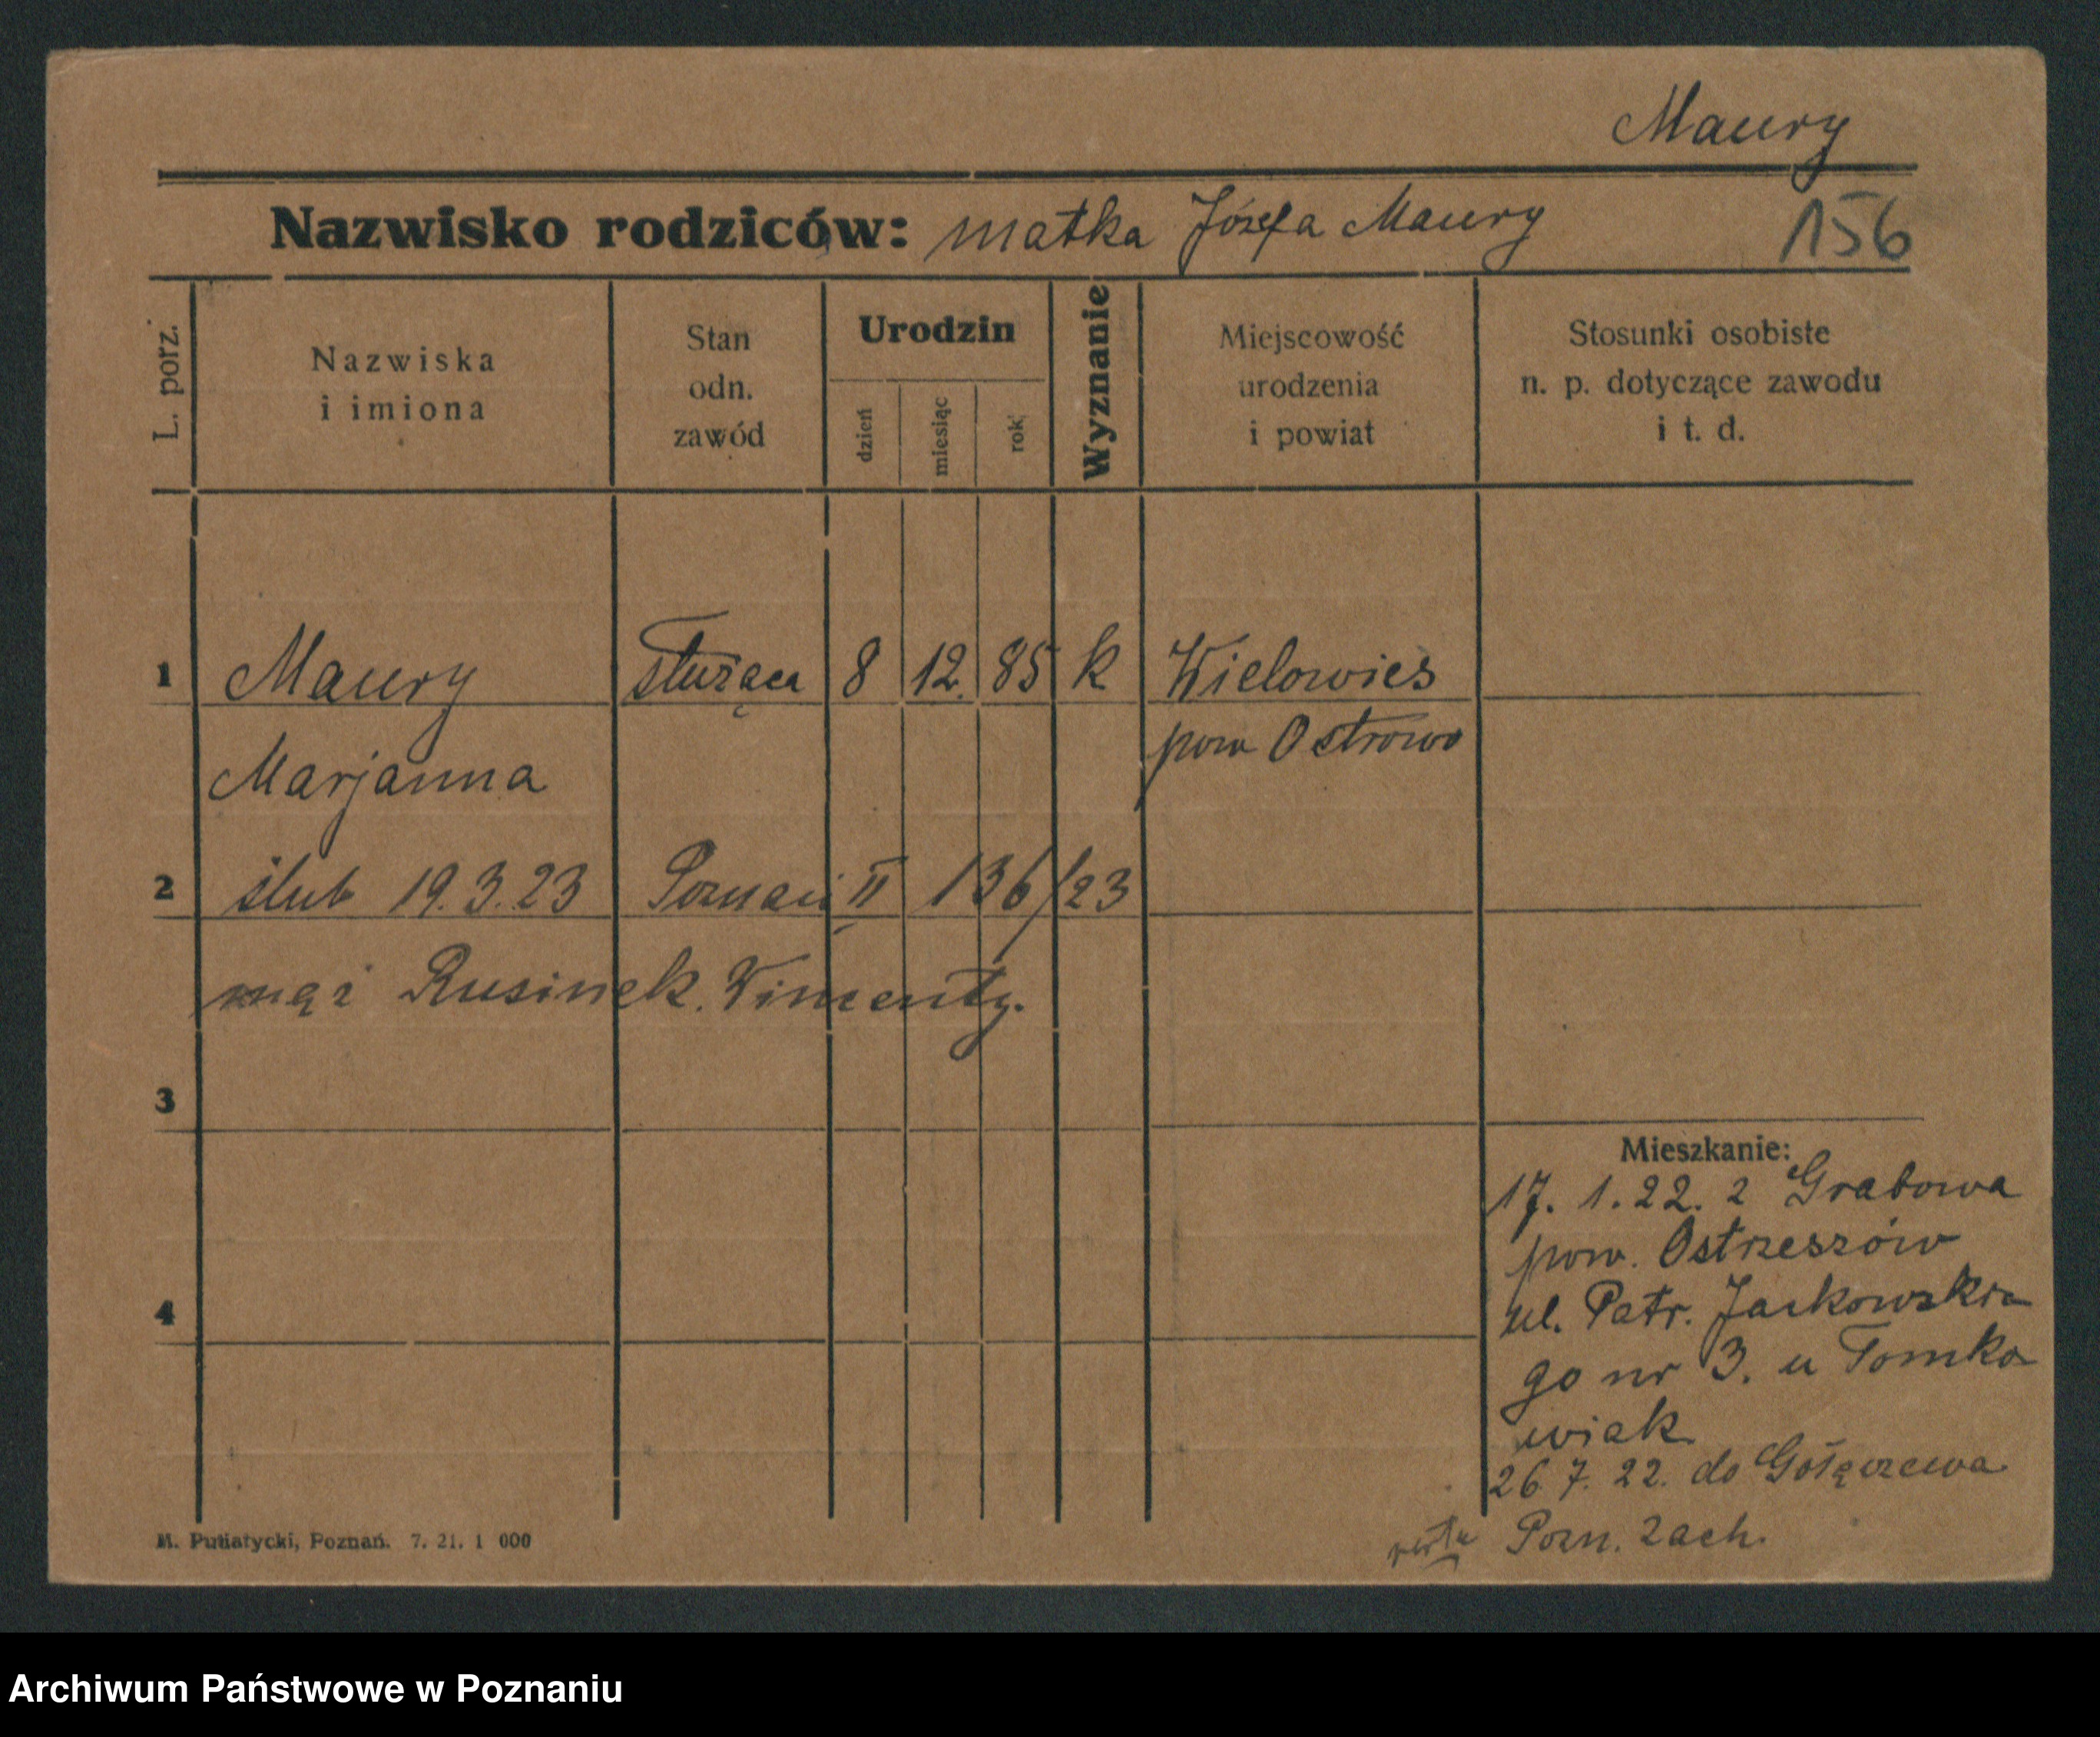 Maury
Nazwisko rodziców: matka Józefa Maury 156
L. porz. Nazwiska i imiona Stan odn. zawód Urodzin dzień miesiąc rok Wyznanie Miejscowość urodzenia i powiat Stosunki osobiste n. p. dotyczące zawodu i t. d.
1 Maury służąca 8 12. 85 k Wielowieś
Marjanna pow Ostrowo
2 ślub 19.3.23 Poznań II 136/23
mąż Rusinek Wincenty.
3
Mieszkanie:
17. 1. 22. z Grabowa
pow. Ostrzeszów
4
ul. Patr. Jackowskie
go nr 3. u Tomko
wiak
26 7. 22. do
Pozn. Zach.
M. Putiatycki, Poznań. 7. 21. 1 000
Archiwum Państwowe w Poznaniu